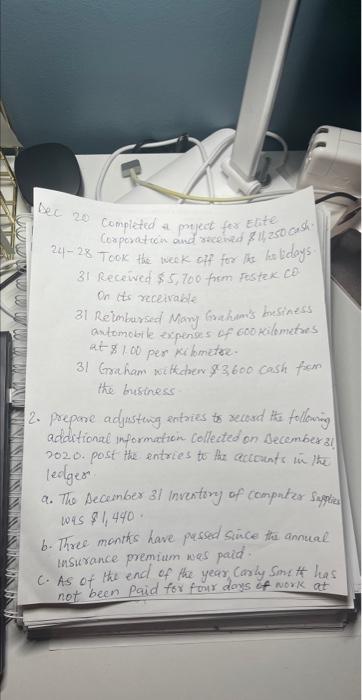 Dec 20 Completed a project for Elite
Corporation and received $11,250 cash.
24-28 Took the week off for the holidays.
31 Received $5,700 from Fostek CO
On its receivable
31 Reimbursed Mary Graham's business
automobile expenses of 600 kilometres
at $1.00 per kilometre.
31 Graham withdrew $3,600 cash from
the business
2. prepare adjusting entries to record the following
additional information collected on December 31,
2020. post the entries to the accounts in the
ledger.
a. The December 31 Inventory of computer Supplies
was $1,440.
b. Three months have passed since the annual
insurance premium was paid.
C. As of the end of the year, Carly Smith has
not been paid for four days of work at